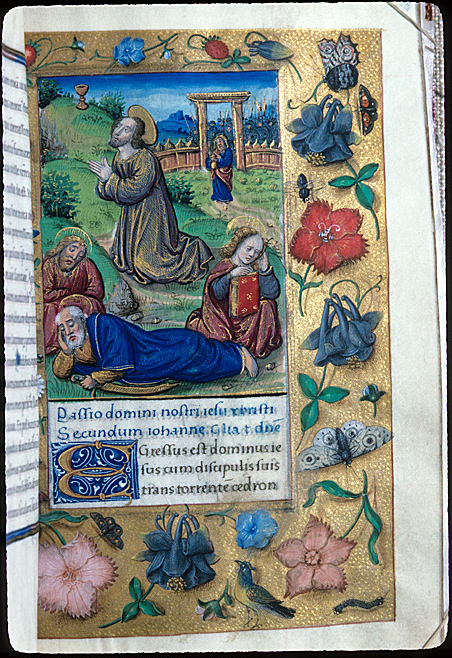 Passio domini nostri iesu christi
Secundum iohanne. Glia t. dne
Egressus est dominus ie
sus cum discipulis suis
trans torrente cedron